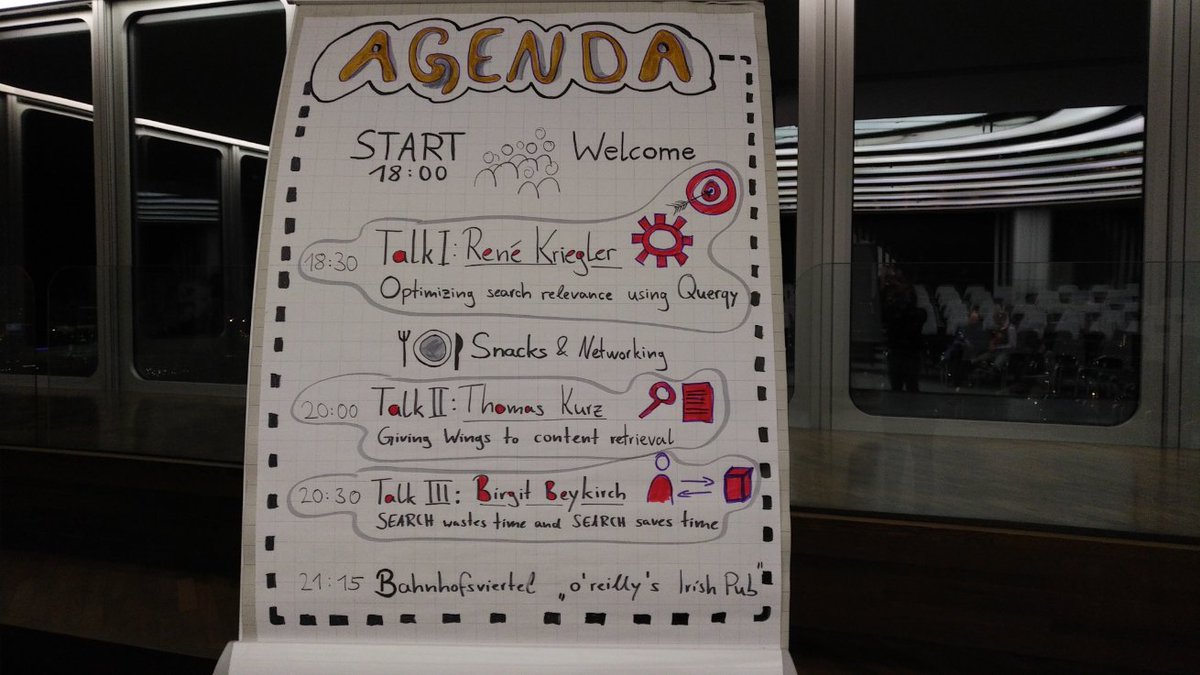 AGENDA
START Welcome
18:00
18:30 Talk I: René Kriegler
Optimizing search relevance using Querqy
Snacks & Networking
20:00 Talk II: Thomas Kurz
Giving Wings to content retrieval
20:30 Talk III: Birgit Beykirch
SEARCH wastes time and SEARCH saves time
21:15 Bahnhofsviertel „o'reilly's Irish Pub"